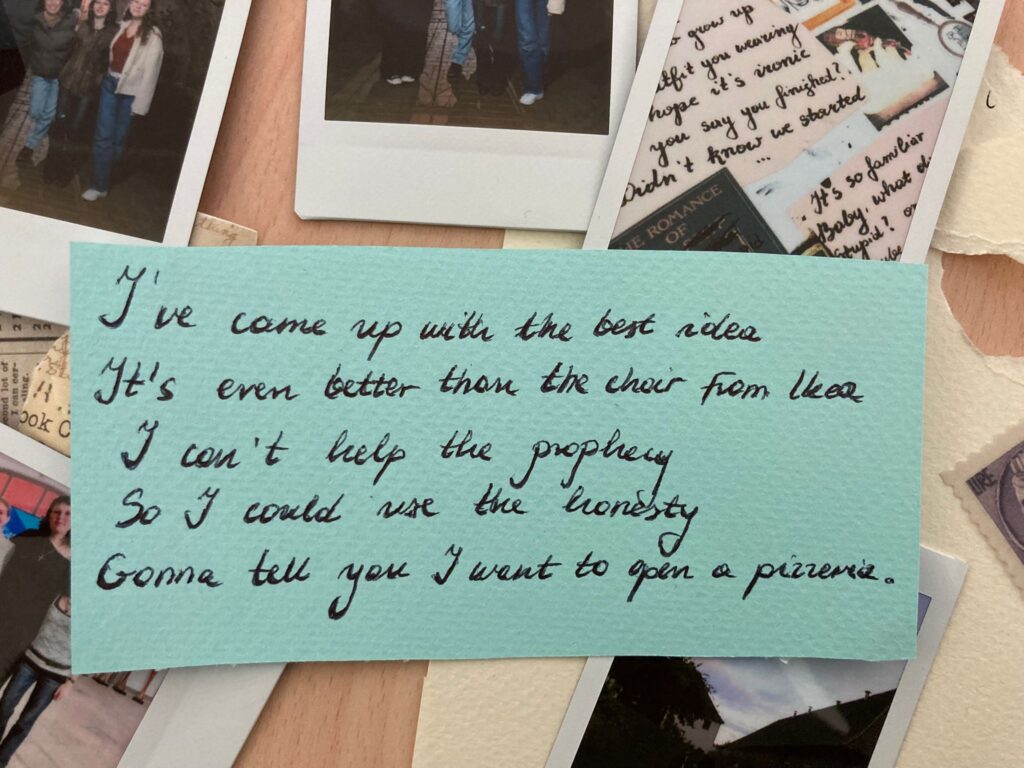 o grow up
tfit you wearing
hope it's ironic
you say you finished?
Didn't know we started
...
It's so familiar
Baby, what d
stupid?
THE ROMANCE
OF
I've came up with the best idea
It's even better than the chair from Ikea
I can't help the prophecy
So I could use the honesty
Gonna tell you I want to open a pizzeria.
ook C
URE